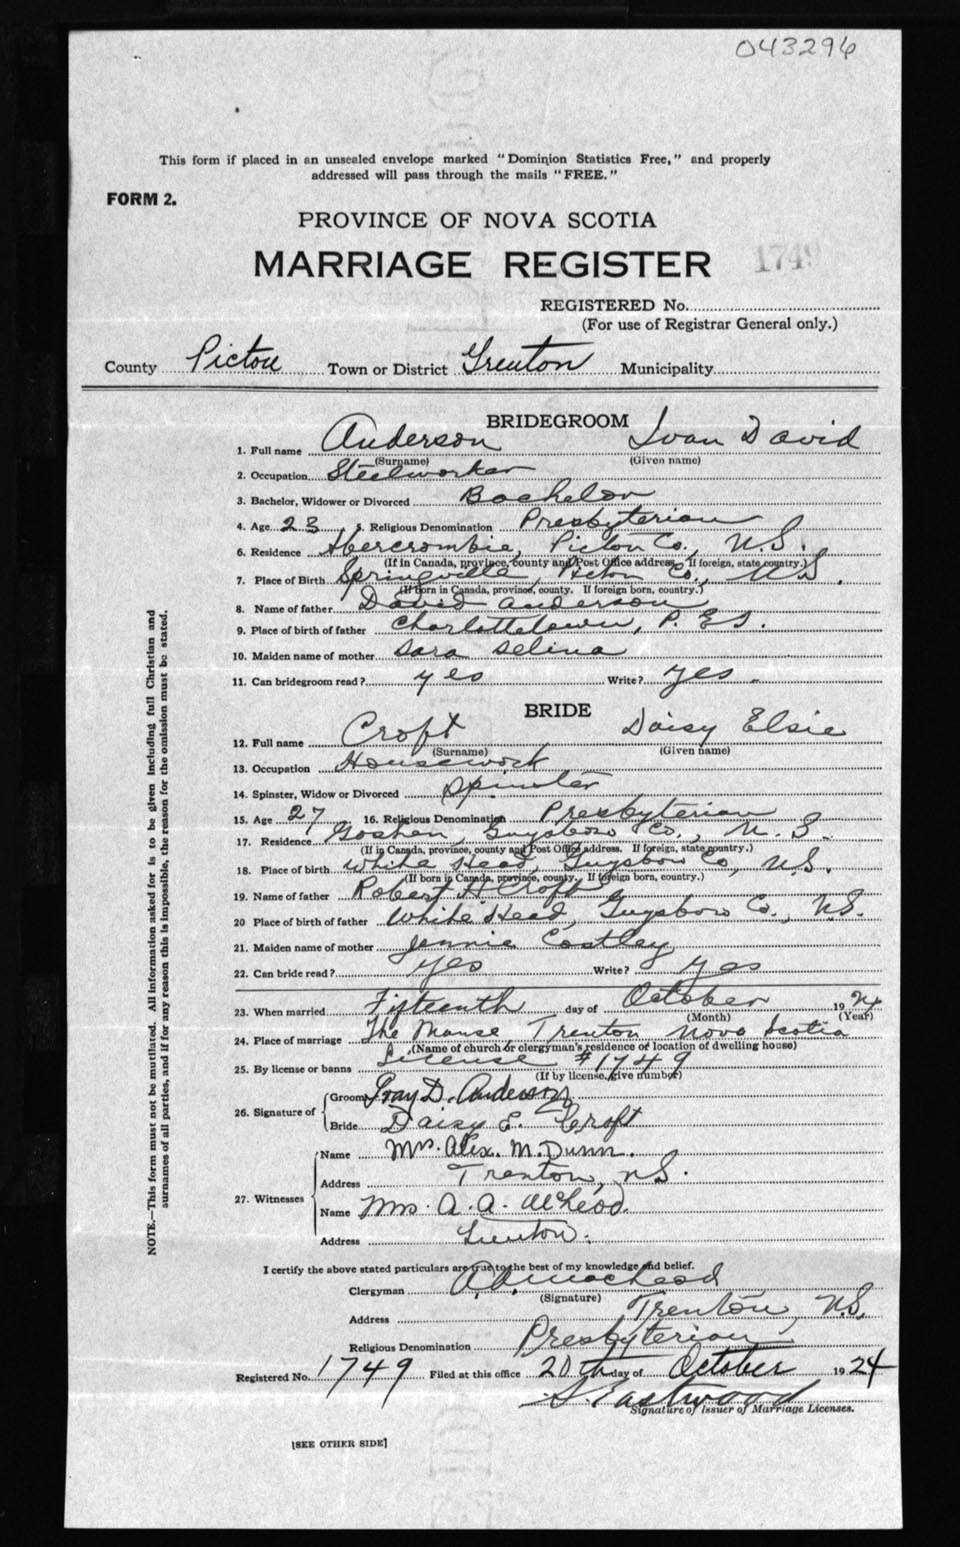 043296
This form if placed in an unsealed envelope marked "Dominion Statistics Free," and properly
addressed will pass through the mails "FREE."
FORM 2.
PROVINCE OF NOVA SCOTIA
MARRIAGE REGISTER 1749
REGISTERED No.
(For use of Registrar General only.)
County Pictou Town or District Trenton Municipality
BRIDEGROOM
1. Full name Anderson Ivan David
(Surname) (Given name)
2. Occupation Steelworker
3. Bachelor, Widower or Divorced Bachelor
4. Age 23 5. Religious Denomination Presbyterian
6. Residence Abercrombie, Pictou Co., N.S.
(If in Canada, province, county and Post Office address. If foreign, state country.)
7. Place of Birth Springville, Pictou Co., N.S.
(If born in Canada, province, county. If foreign born, country.)
8. Name of father David Anderson
9. Place of birth of father Charlottetown, P.E.I.
10. Maiden name of mother Sara Selina
11. Can bridegroom read? yes Write? yes
BRIDE
12. Full name Croft Daisy Elsie
(Surname) (Given name)
13. Occupation Housework
14. Spinster, Widow or Divorced Spinster
15. Age 27 16. Religious Denomination Presbyterian
17. Residence Goshen, Guysboro Co., N.S.
(If in Canada, province, county and Post Office address. If foreign, state country.)
18. Place of birth White Head, Guysboro Co, N.S.
(If born in Canada, province, county. If foreign born, country.)
19. Name of father Robert H Croft
20 Place of birth of father White Head, Guysboro Co., N.S.
21. Maiden name of mother Jennie Costley
22. Can bride read? yes Write? yes
23. When married Fifteenth day of October 1924
(Month) (Year)
24. Place of marriage The Manse Trenton Nova Scotia
(Name of church or clergyman's residence or location of dwelling house)
25. By license or banns License #1749
(If by license, give number)
26. Signature of Groom D. Anderson
Bride Daisy E. Croft
27. Witnesses Name Mrs. Alex. M. Dunn.
Address Trenton, N.S.
Name Mrs. A. A. McLeod.
Address Trenton.
I certify the above stated particulars are true to the best of my knowledge and belief.
Clergyman A. A. MacLeod
(Signature)
Address Trenton, N.S.
Religious Denomination Presbyterian
Registered No. 1749 Filed at this office 20th day of October 1924
Eastwood
Signature of Issuer of Marriage Licenses.
[SEE OTHER SIDE]
NOTE.—This form must not be mutilated. All information asked for is to be given including full Christian and
surnames of all parties, and if for any reason this is impossible, the reason for the omission must be stated.